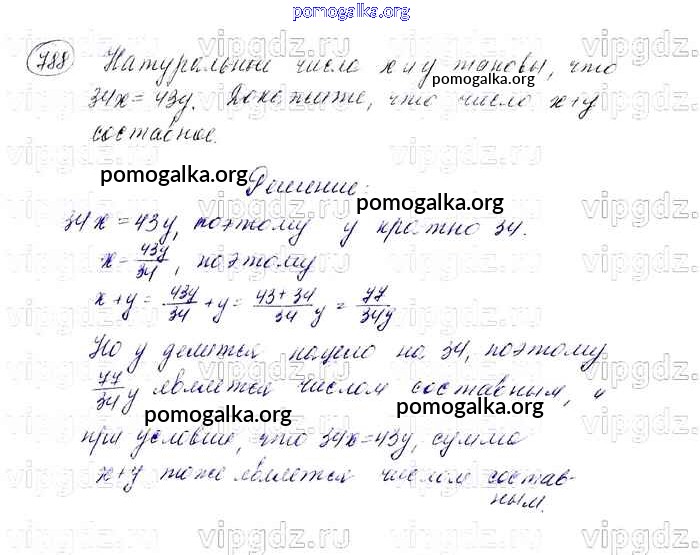 pomogalka.org
788 Натуральные числа x и y таковы, что
34x = 43y. Докажите, что число x+y
составное.
Решение:
34x = 43y, поэтому y кратно 34.
x = 43y/34, поэтому
x + y = 43y/34 + y = 43+34/34 y = 77/34 y
Но y делится нацело на 34, поэтому
77/34 y является числом составным, и
при условии, что 34x = 43y, сумма
x+y тоже является числом состав-
ным.
pomogalka.org
pomogalka.org
pomogalka.org
pomogalka.org
pomogalka.org
vipgdz.ru